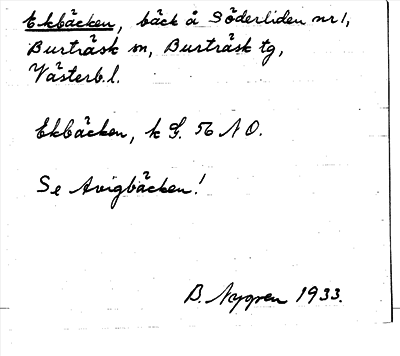 Ekbäcken, bäck å Söderliden nr 1,
Burträsk sn, Burträsk tg,
Västerb. l.
Ekbäcken, k G. 56 N O.
Se Avigbäcken!
B. Nygren 1933.